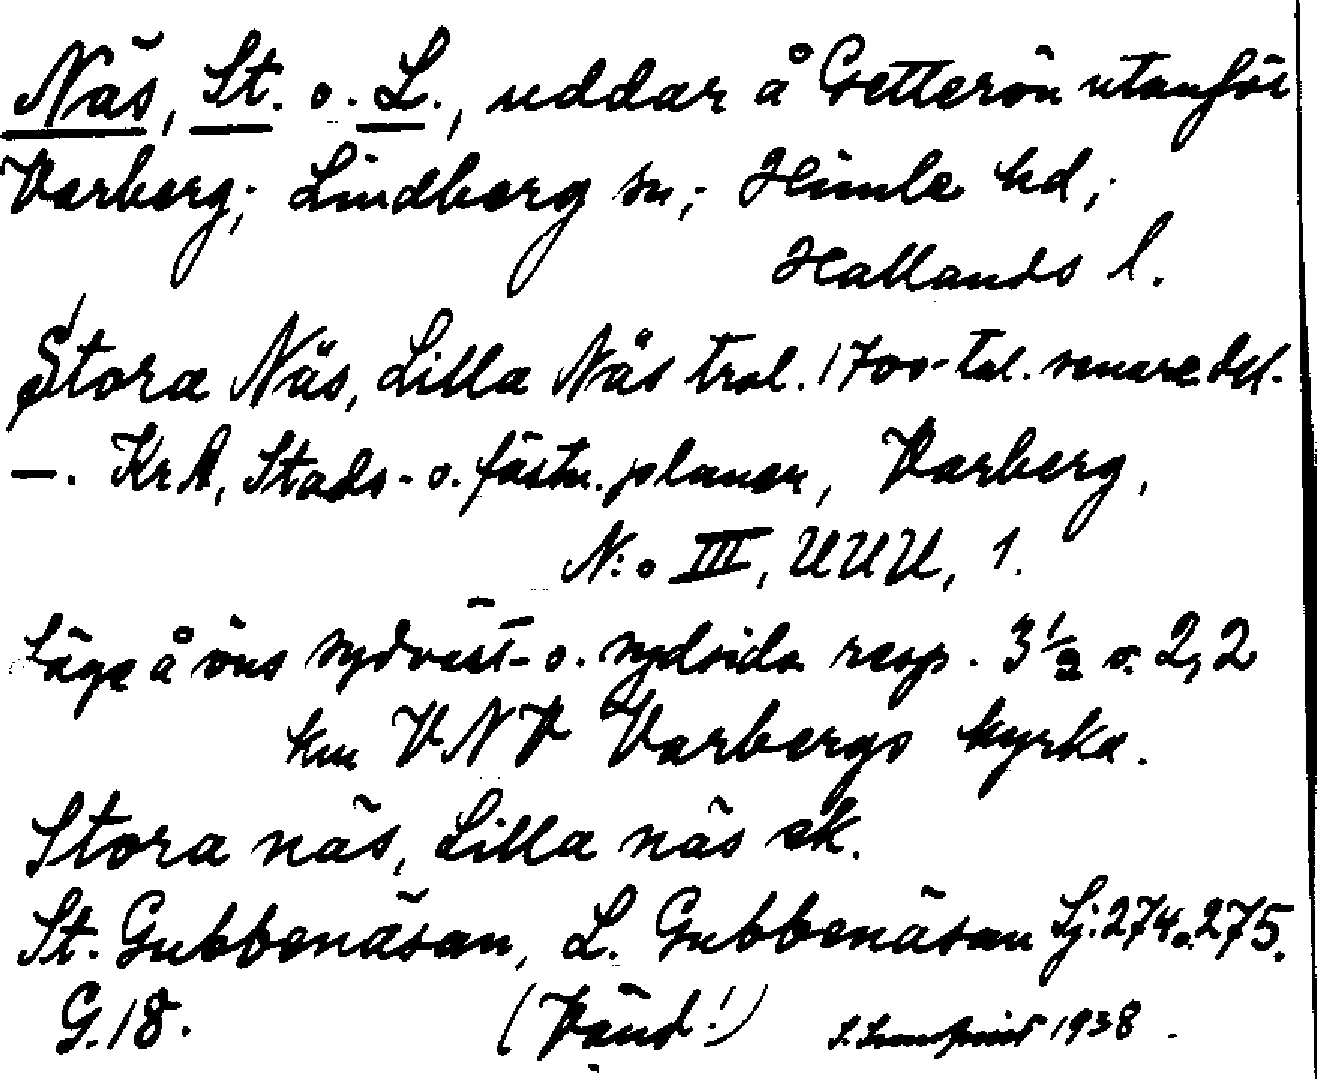 Näs, St. o. L., uddar å Getterön utanför
Varberg; Lindberg sn; Himle hd;
Hallands l.
Stora Näs, Lilla Näs trol. 1700-tal. senare del.
—. KrA, Stads- o. fästn. planer, Varberg,
N:o III, UUU, 1.
Läge å öns sydväst- o. sydsida resp. 3 1/2 o. 2,2
km VNV Varbergs kyrka.
Stora näs, Lilla näs ek.
St. Gubbenäsan, L. Gubbenäsan Sj: 274 o. 275.
G. 18. (Vänd!) 1938.